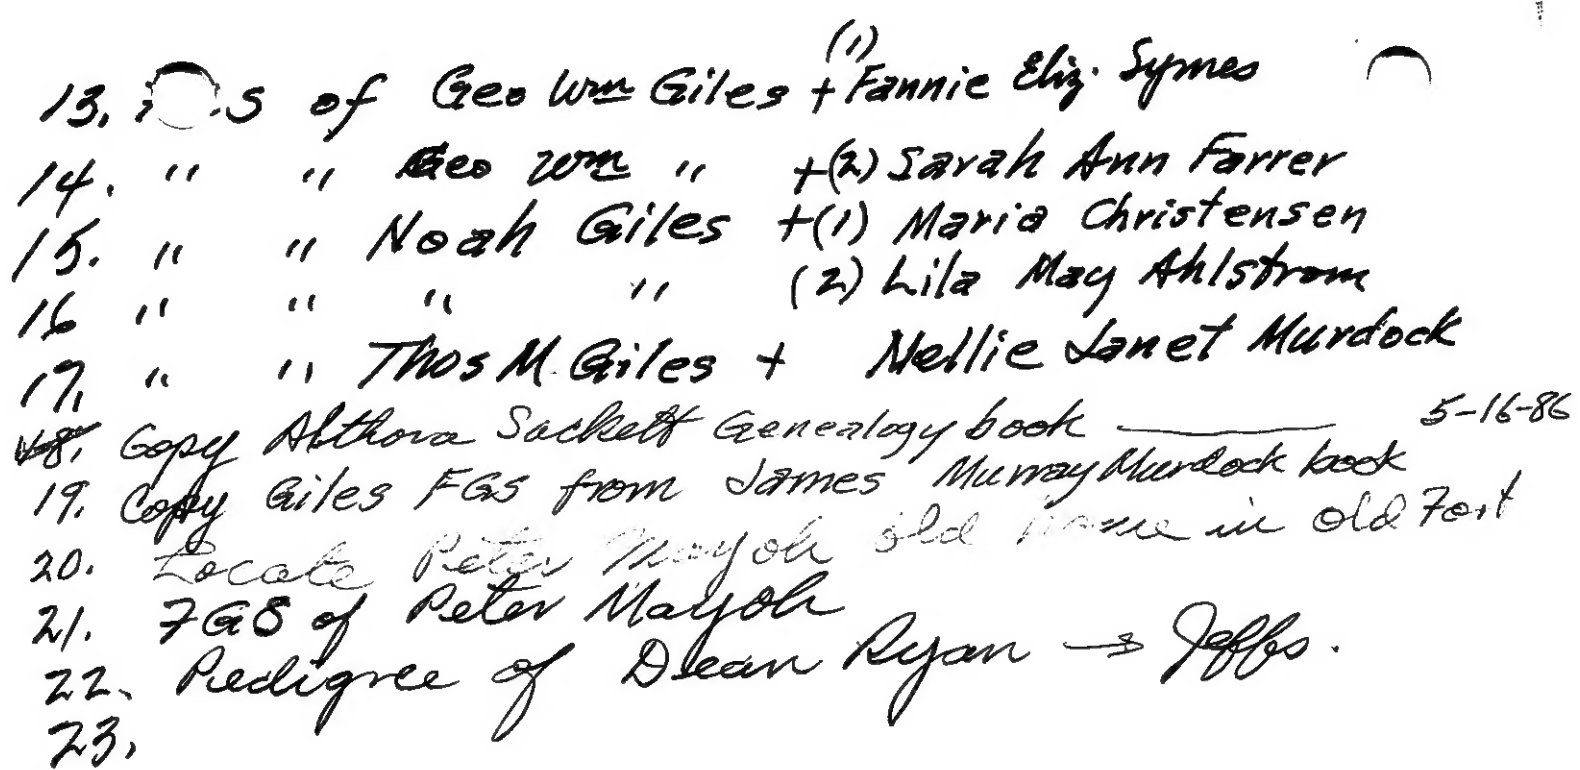 13. S of Geo Wm Giles +(1) Fannie Eliz. Symes
14. " " Geo Wm " +(2) Sarah Ann Farrer
15. " " Noah Giles +(1) Maria Christensen
16 " " " " (2) Lila May Ahlstrom
17. " " Thos M. Giles + Nellie Janet Murdock
18. Copy Althora Sackett Genealogy book —— 5-16-86
19. Copy Giles FGS from James Murray Murdock book
20. Locate Peter Mayoh old home in old Fort
21. FGS of Peter Mayoh
22. Pedigree of Dean Ryan → Jeffs.
23.